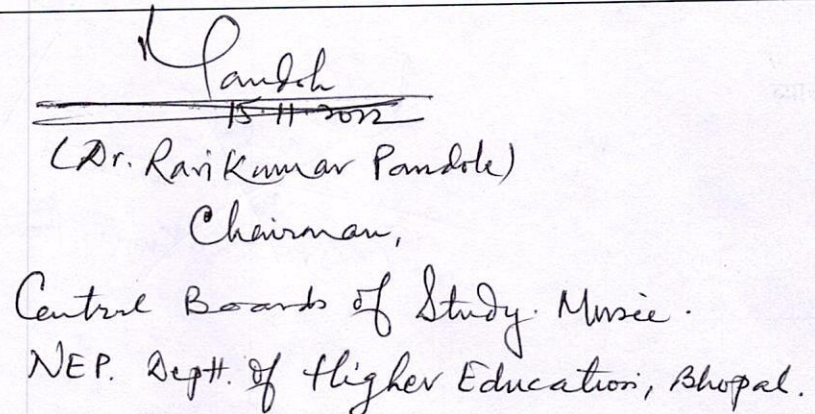 Pandole
15.11.2022
(Dr. Ravi Kumar Pandole)
Chairman,
Central Boards of Study. Music.
NEP. Deptt. of Higher Education, Bhopal.